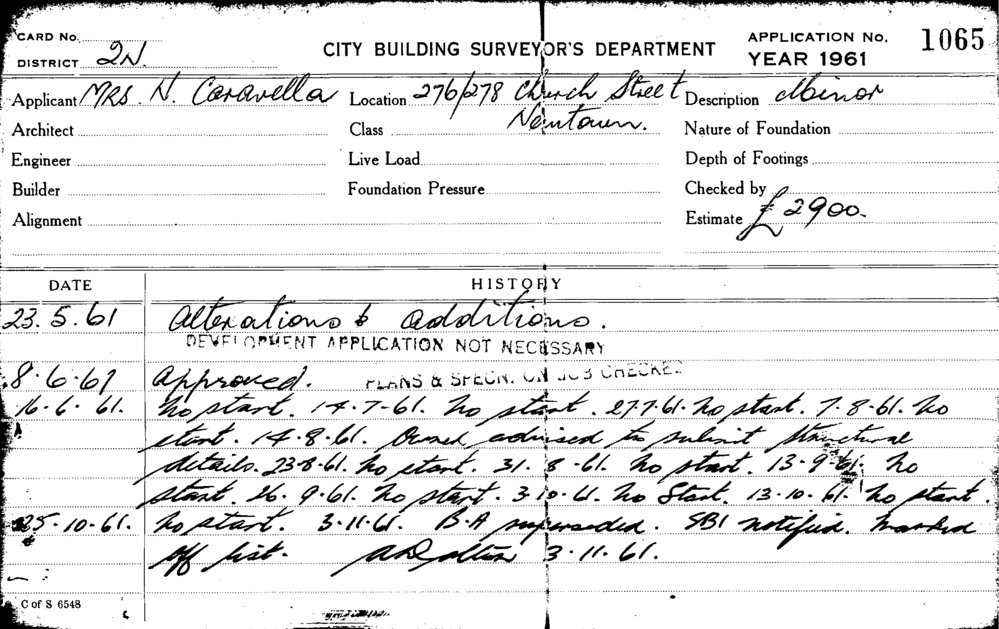 CARD No.
DISTRICT 2N.
CITY BUILDING SURVEYOR'S DEPARTMENT
APPLICATION No. 1065
YEAR 1961
Applicant MRS. N. Caravella Location 276/278 Church Street Description Minor
Newtown.
Architect Class Nature of Foundation
Engineer Live Load Depth of Footings
Builder Foundation Pressure Checked by
Alignment Estimate £2900.
DATE HISTORY
23.5.61 Alterations & additions.
DEVELOPMENT APPLICATION NOT NECESSARY
8.6.61 Approved. PLANS & SPECN. ON JOB CHECKED
16.6.61. No start. 14-7-61. No start. 27.7.61. No start. 7.8.61. No
start. 14.8.61. Owner advised to submit structural
details. 23.8.61. No start. 31.8.61. No start. 13.9.61. No
start. 26.9.61. No start. 3.10.61. No Start. 13.10.61. No start.
25.10.61. No start. 3.11.61. B.A superseded. SBI notified. Marked
off list. 3.11.61.
C of S 6548